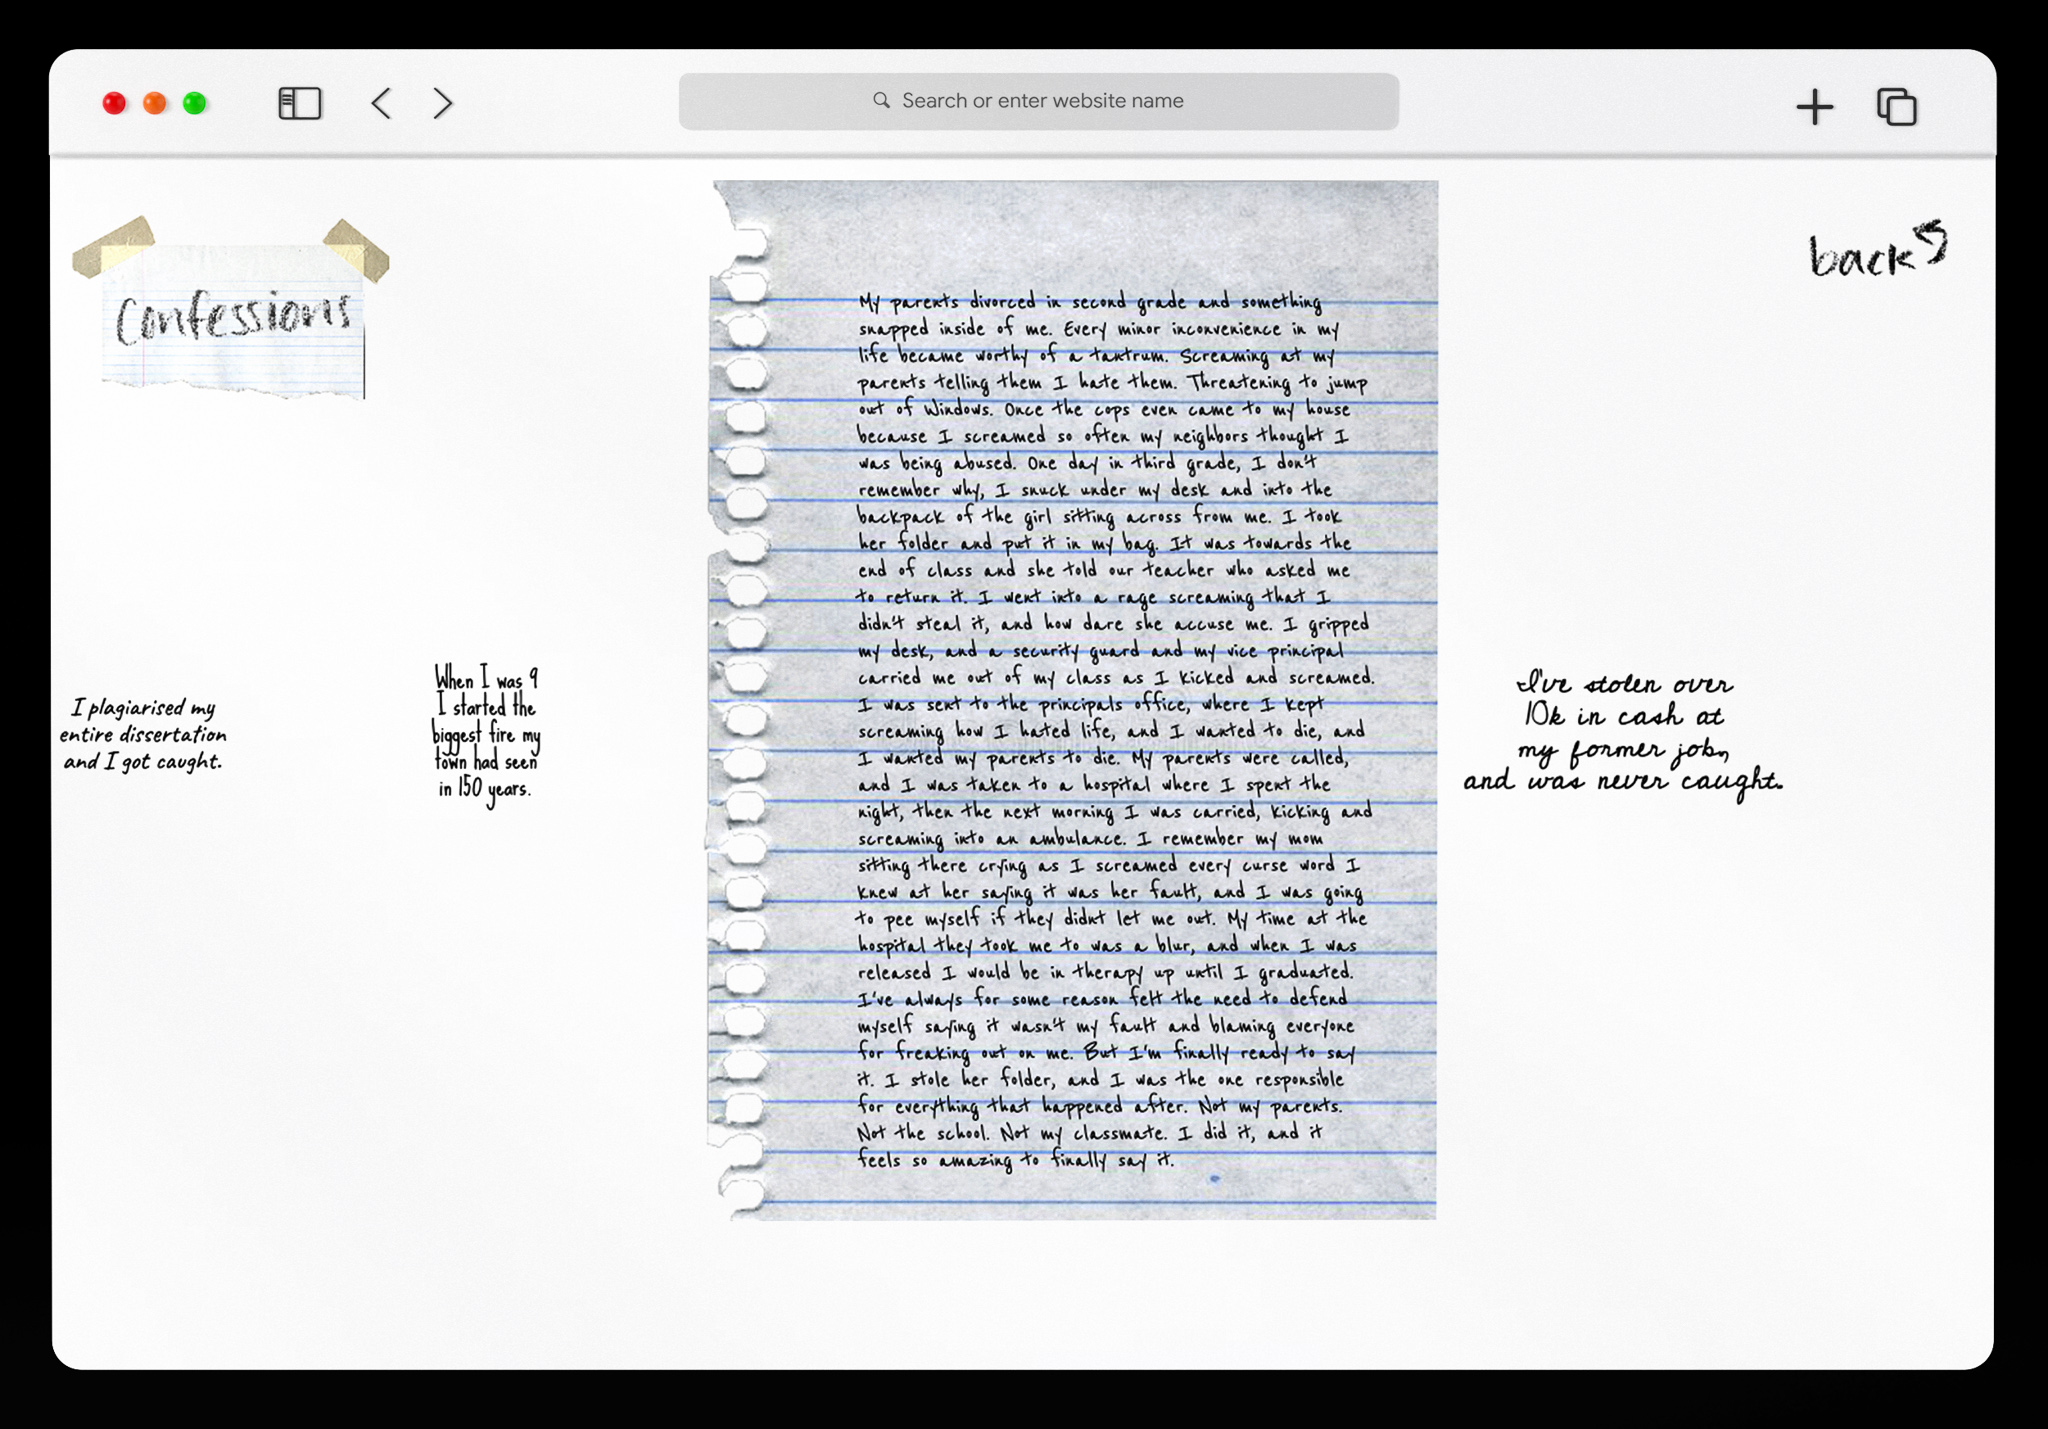 Search or enter website name
Confessions
back
My parents divorced in second grade and something
snapped inside of me. Every minor inconvenience in my
life became worthy of a tantrum. Screaming at my
parents telling them I hate them. Threatening to jump
out of Windows. Once the cops even came to my house
because I screamed so often my neighbors thought I
was being abused. One day in third grade, I don't
remember why, I snuck under my desk and into the
backpack of the girl sitting across from me. I took
her folder and put it in my bag. It was towards the
end of class and she told our teacher who asked me
to return it. I went into a rage screaming that I
didn't steal it, and how dare she accuse me. I gripped
my desk, and a security guard and my vice principal
carried me out of my class as I kicked and screamed.
I was sent to the principals office, where I kept
screaming how I hated life, and I wanted to die, and
I wanted my parents to die. My parents were called,
and I was taken to a hospital where I spent the
night, then the next morning I was carried, kicking and
screaming into an ambulance. I remember my mom
sitting there crying as I screamed every curse word I
knew at her saying it was her fault, and I was going
to pee myself if they didnt let me out. My time at the
hospital they took me to was a blur, and when I was
released I would be in therapy up until I graduated.
I've always for some reason felt the need to defend
myself saying it wasn't my fault and blaming everyone
for freaking out on me. But I'm finally ready to say
it. I stole her folder, and I was the one responsible
for everything that happened after. Not my parents.
Not the school. Not my classmate. I did it, and it
feels so amazing to finally say it.
I plagiarised my
entire dissertation
and I got caught.
When I was 9
I started the
biggest fire my
town had seen
in 150 years.
I've stolen over
10k in cash at
my former job,
and was never caught.